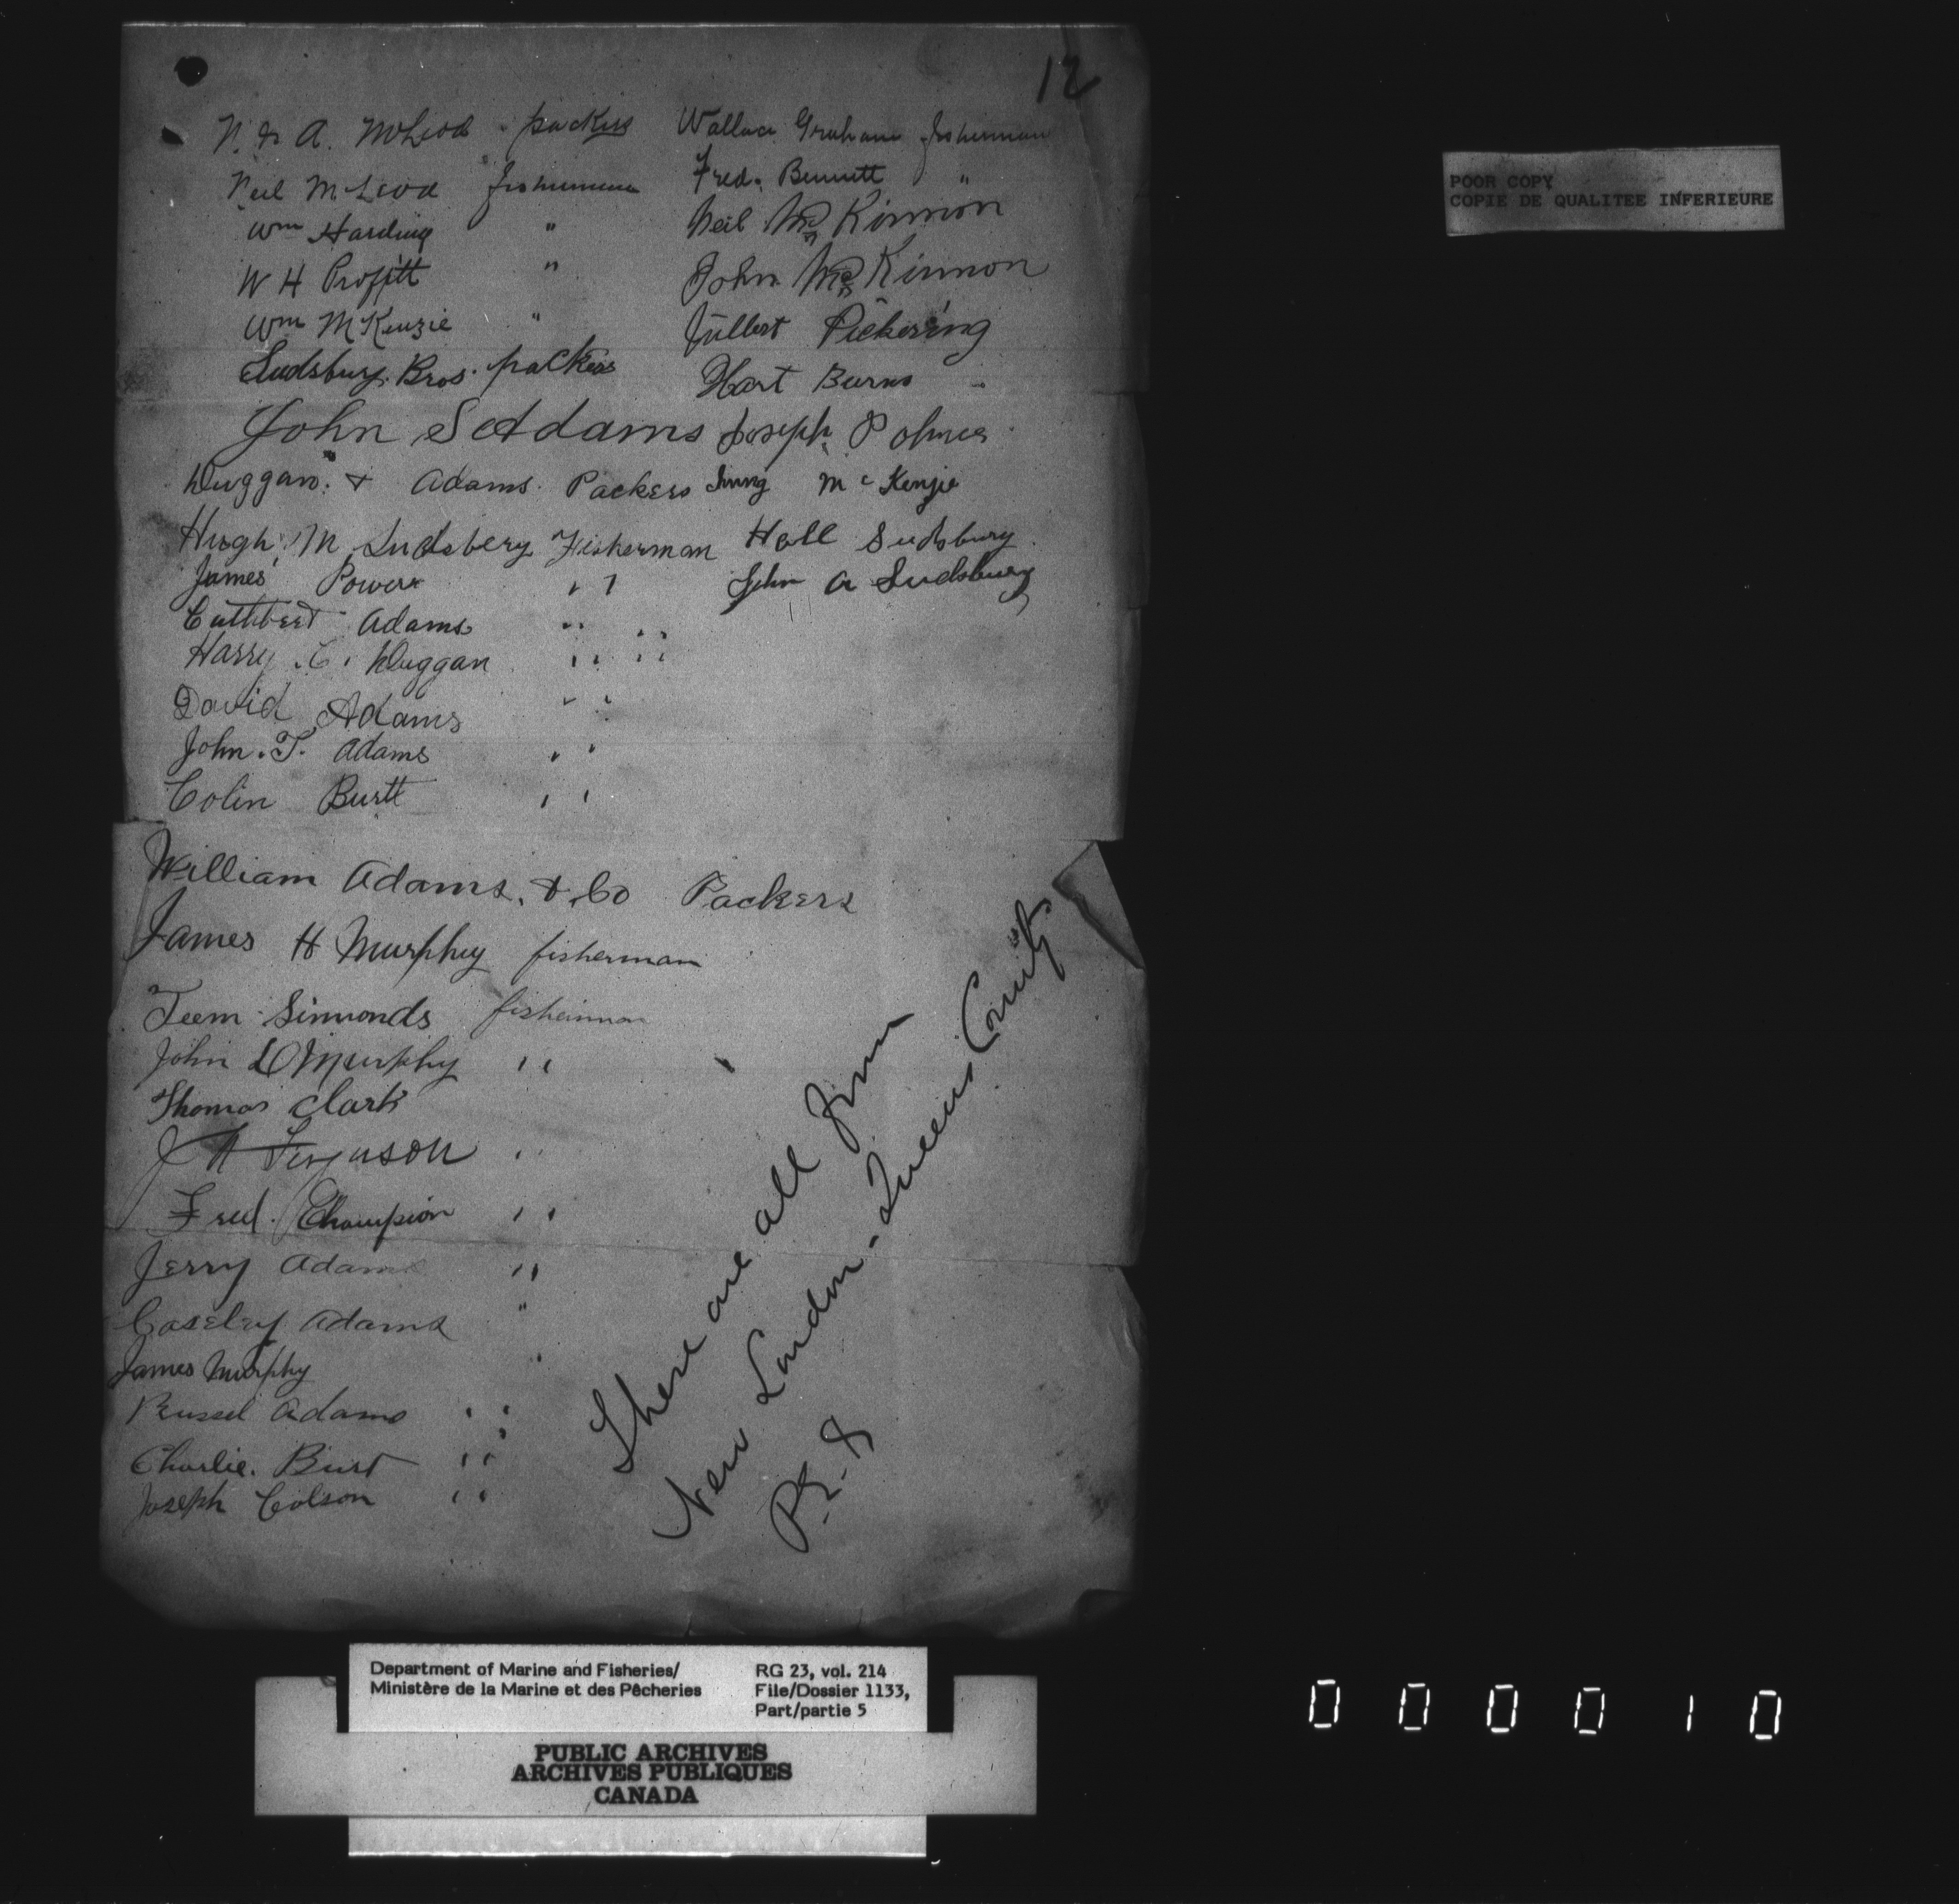 12
N. & A. McLeod packers
Neil McLeod fisherman
Wm Harding "
W H Profitt "
Wm McKenzie "
Sudsbury Bros. packers
John S Adams
Duggan & Adams. Packers
Hugh M Sudsbery Fisherman
James Power "
Cuthbert Adams "
Harry C. Duggan " "
David Adams "
John. T. Adams "
Colin Burtt "
William Adams. & Co Packers
James H Murphy fisherman
Teem Simmonds fisherman
John D Murphy "
Thomas Clark
J A Ferguson "
Fred. Champion "
Jerry Adams "
Caseley Adams "
James Murphy "
Russel Adams "
Charlie. Burt "
Joseph Colson "
Wallace Graham fisherman
Fred. Bennett "
Neil McKinnon
John McKinnon
Pickering
Hart Burns "
Joseph
McKenzie
Hall Sudsbury
John A Sudsbury
These are all from
New London - Queens County
P.E.I
POOR COPY
COPIE DE QUALITEE INFERIEURE
Department of Marine and Fisheries/
Ministère de la Marine et des Pêcheries
RG 23, vol. 214
File/Dossier 1133,
Part/partie 5
PUBLIC ARCHIVES
ARCHIVES PUBLIQUES
CANADA
000010